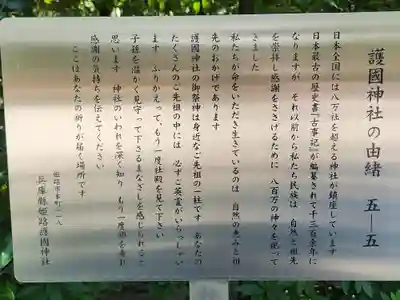 護國神社の由緒　五―五
日本全国には八万社を超える神社が鎮座しています
日本最古の歴史書『古事記』が編纂されて千三百余年に
なりますが　それ以前から私たち民族は　自然と祖先
を崇拝し感謝をささげるために　八百万の神々を祀って
きました
私たちが命をいただき生きているのは　自然の恵みと祖
先のおかげであります
護國神社の御祭神は身近なご先祖の一柱です　あなたの
たくさんのご先祖の中には　必ずご英霊がいらっしゃい
ます　ふりかえって、もう一度社殿を見て下さい
子孫を温かく見守って下さるまなざしを感じられると
思います　神社のいわれを深く知り　もう一度御参拝
感謝の気持ちを伝えてください
ここはあなたの祈りが届く場所です
姫路市本町一一八
兵庫縣姫路護國神社